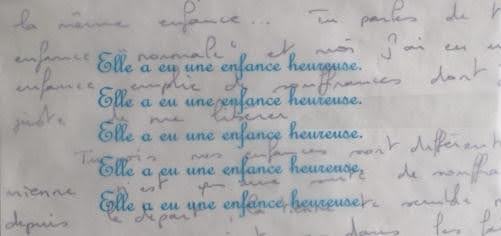 la même enfance... Tu parles de
enfance "normale" et moi j'ai eu
Elle a eu une enfance heureuse.
enfance emplie de souffrances dont
Elle a eu une enfance heureuse.
juste de me libérer
Elle a eu une enfance heureuse.
Tu vois nos enfances sont différent
Elle a eu une enfance heureuse.
mienne n'est qu'une suite de souffra
Elle a eu une enfance heureuse.
depuis le départ, la semble
dans les